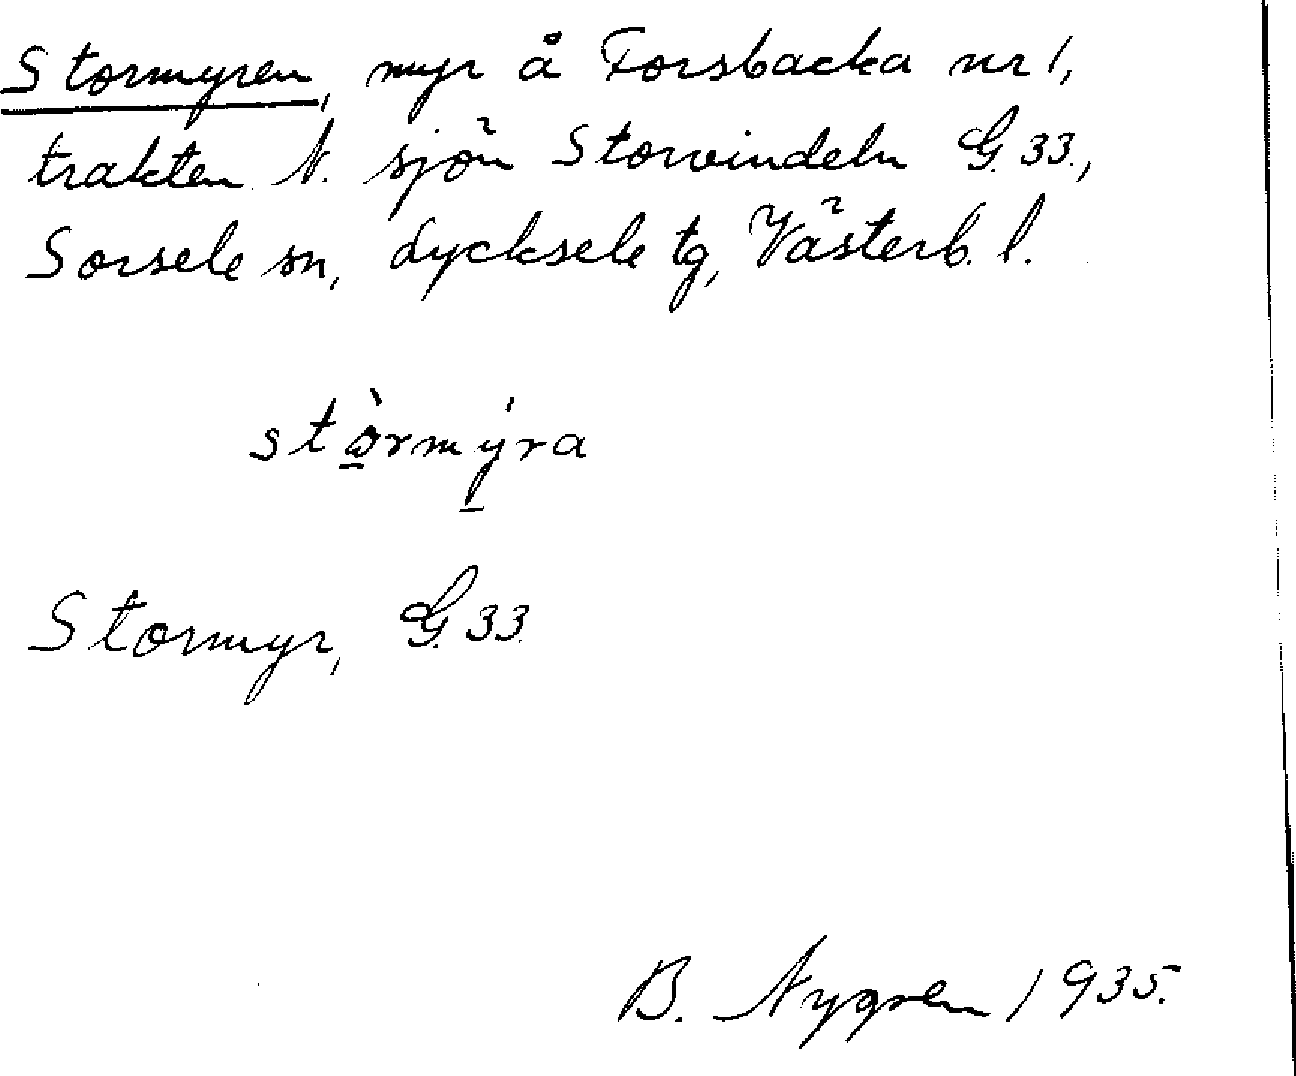 Stormyren, myr å Forsbacka nr 1,
trakten N. sjön Storvindeln G. 33.,
Sorsele sn, Lycksele tg, Västerb. l.
stòrmýra
Stormyr, G. 33.
B. Nygren 1935.